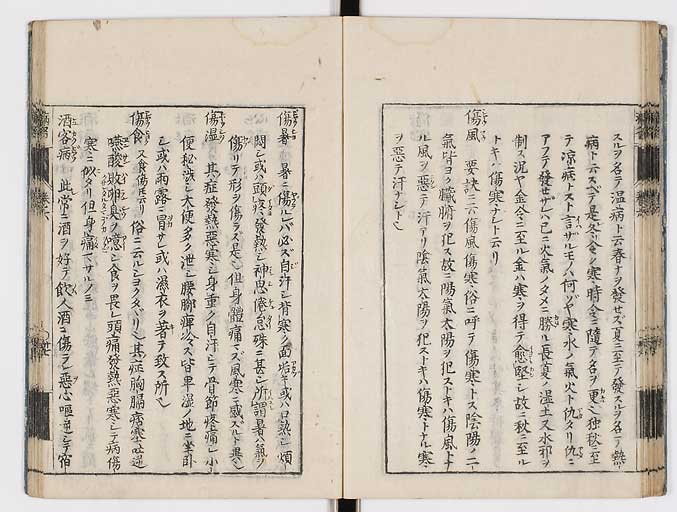 スルヲ名テ温病ト云春ナヲ發セズ夏ニ至テ發スルヲ名テ熱
病ト云スベテ是冬令ノ寒時令ニ隨テ名ヲ更ム独秋ニ至
テ涼病トスト言サルモノハ何ゾヤ寒水ノ氣火ト仇タリ仇ニ
アフテ發セザレハ已ニ火氣ノタメニ勝ル長夏ノ湿土又水邪ヲ
制ス况ヤ金令ニ至ル金ハ寒ヲ得テ愈堅シ故ニ秋ニ至ル
トキハ傷寒ナシト云リ
傷風 要訣ニ云傷風傷寒俗ニ呼テ傷寒トス陰陽ノ二
氣皆ヨク臟腑ヲ犯ス故ニ陽氣太陽ヲ犯ストキハ傷風トナ
ル風ヲ惡テ汗アリ陰氣太陽ヲ犯ストキハ傷寒トナル寒
ヲ惡テ汗ナシト
傷暑 暑ニ傷ルレバ必ズ自汗シ背寒ク面垢ツキ或ハ口熱シ煩
悶シ或ハ頭疼發熱シ神思倦怠殊ニ甚シ所謂暑ハ氣ヲ
傷リテ形ヲ傷ラズ是也但身體痛マズ風寒ニ感ズルト異也
傷湿 其症發熱惡寒シ身重ク自汗シテ骨節疼痛シ小
便秘渋シ大便多ク泄シ腰脚痺冷ス皆卑湿ノ地ニ坐卧
シ或ハ雨露ニ冒サレ或ハ濕衣ヲ著テ致ス所也
傷食 又食傷モ云リ俗ニ云ルショクタヾリ也其症胸膈痞塞シ吐逆
嚥酸敗卵臭ヲ噫シ食ヲ畏レ頭痛發熱惡寒シテ病傷
寒ニ似タリ但身痛マザルノミ
酒客病 此常ニ酒ヲ好テ飲人酒ニ傷ラレ惡心嘔逆シテ宿